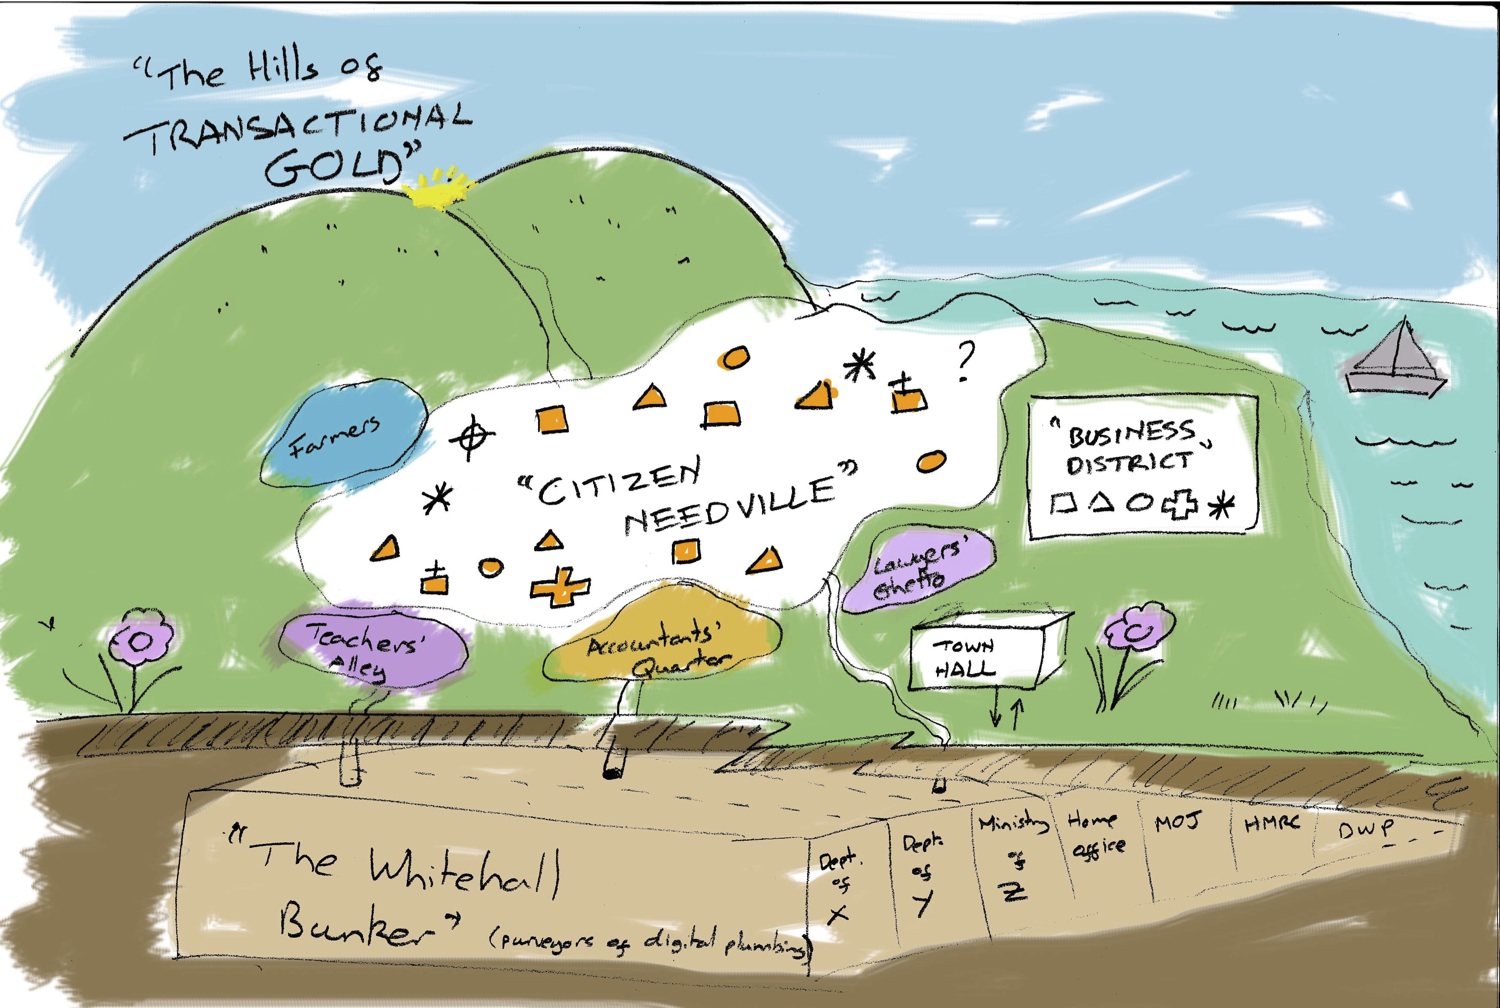 "The Hills of
TRANSACTIONAL
GOLD"
Farmers
?
"CITIZEN
NEEDVILLE"
"BUSINESS
DISTRICT"
Lawyers'
Ghetto
Teachers'
Alley
Accountants'
Quarter
TOWN
HALL
"The Whitehall
Bunker" (purveyors of digital plumbing)
Dept.
of
X
Dept.
of
Y
Ministry
of
Z
Home
office
MOJ
HMRC
DWP